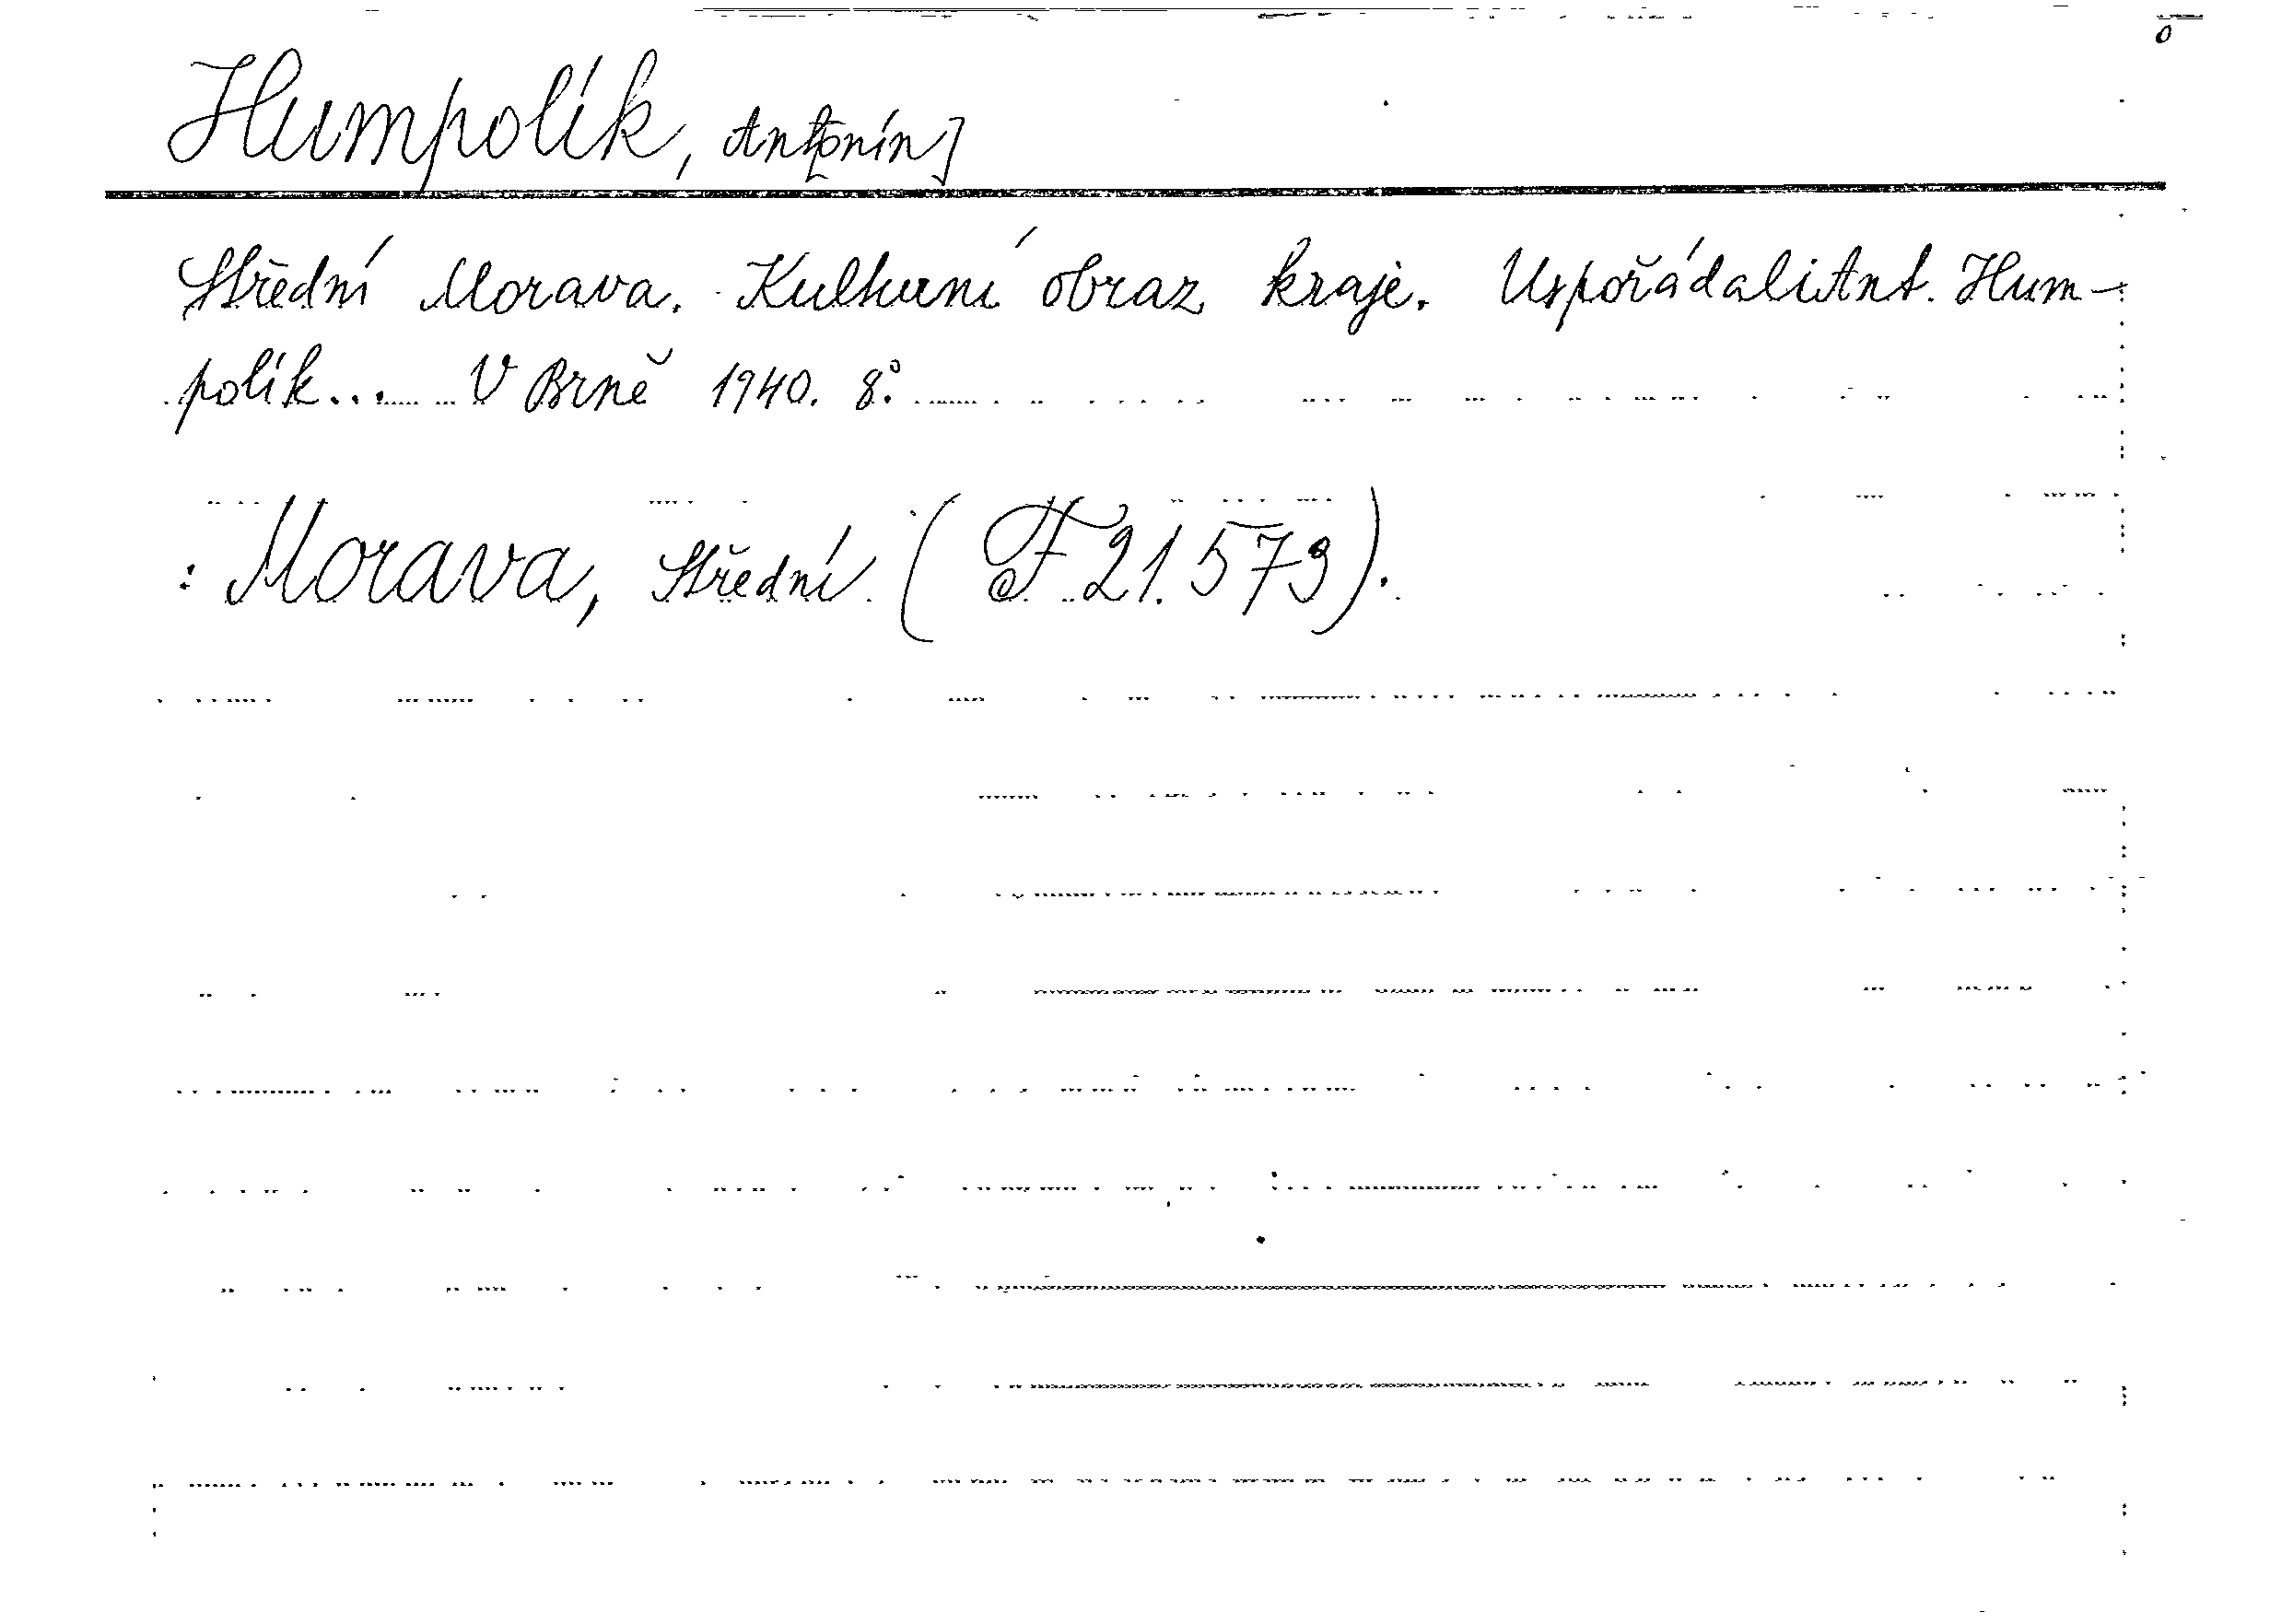 Humpolík, Ant[onín]
Střední Morava. Kulturní obraz kraje. Uspořádali Ant. Hum-
polík... V Brně 1940. 8.°
: Morava, Střední. (F 21.573).